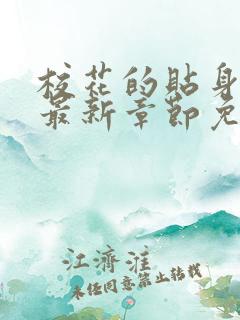 校花的贴身
最新章節免
江濟淮
未经同意禁止转载